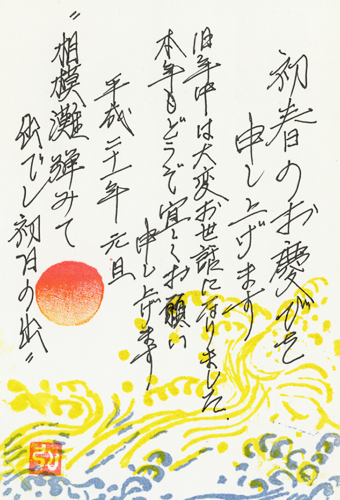 初春のお慶びを
申し上げます
旧年中は大変お世話になりました
本年もどうぞ宜しくお願い
申し上げます
平成二十一年 元旦
"相模灘弾みて
出でし初日の出"